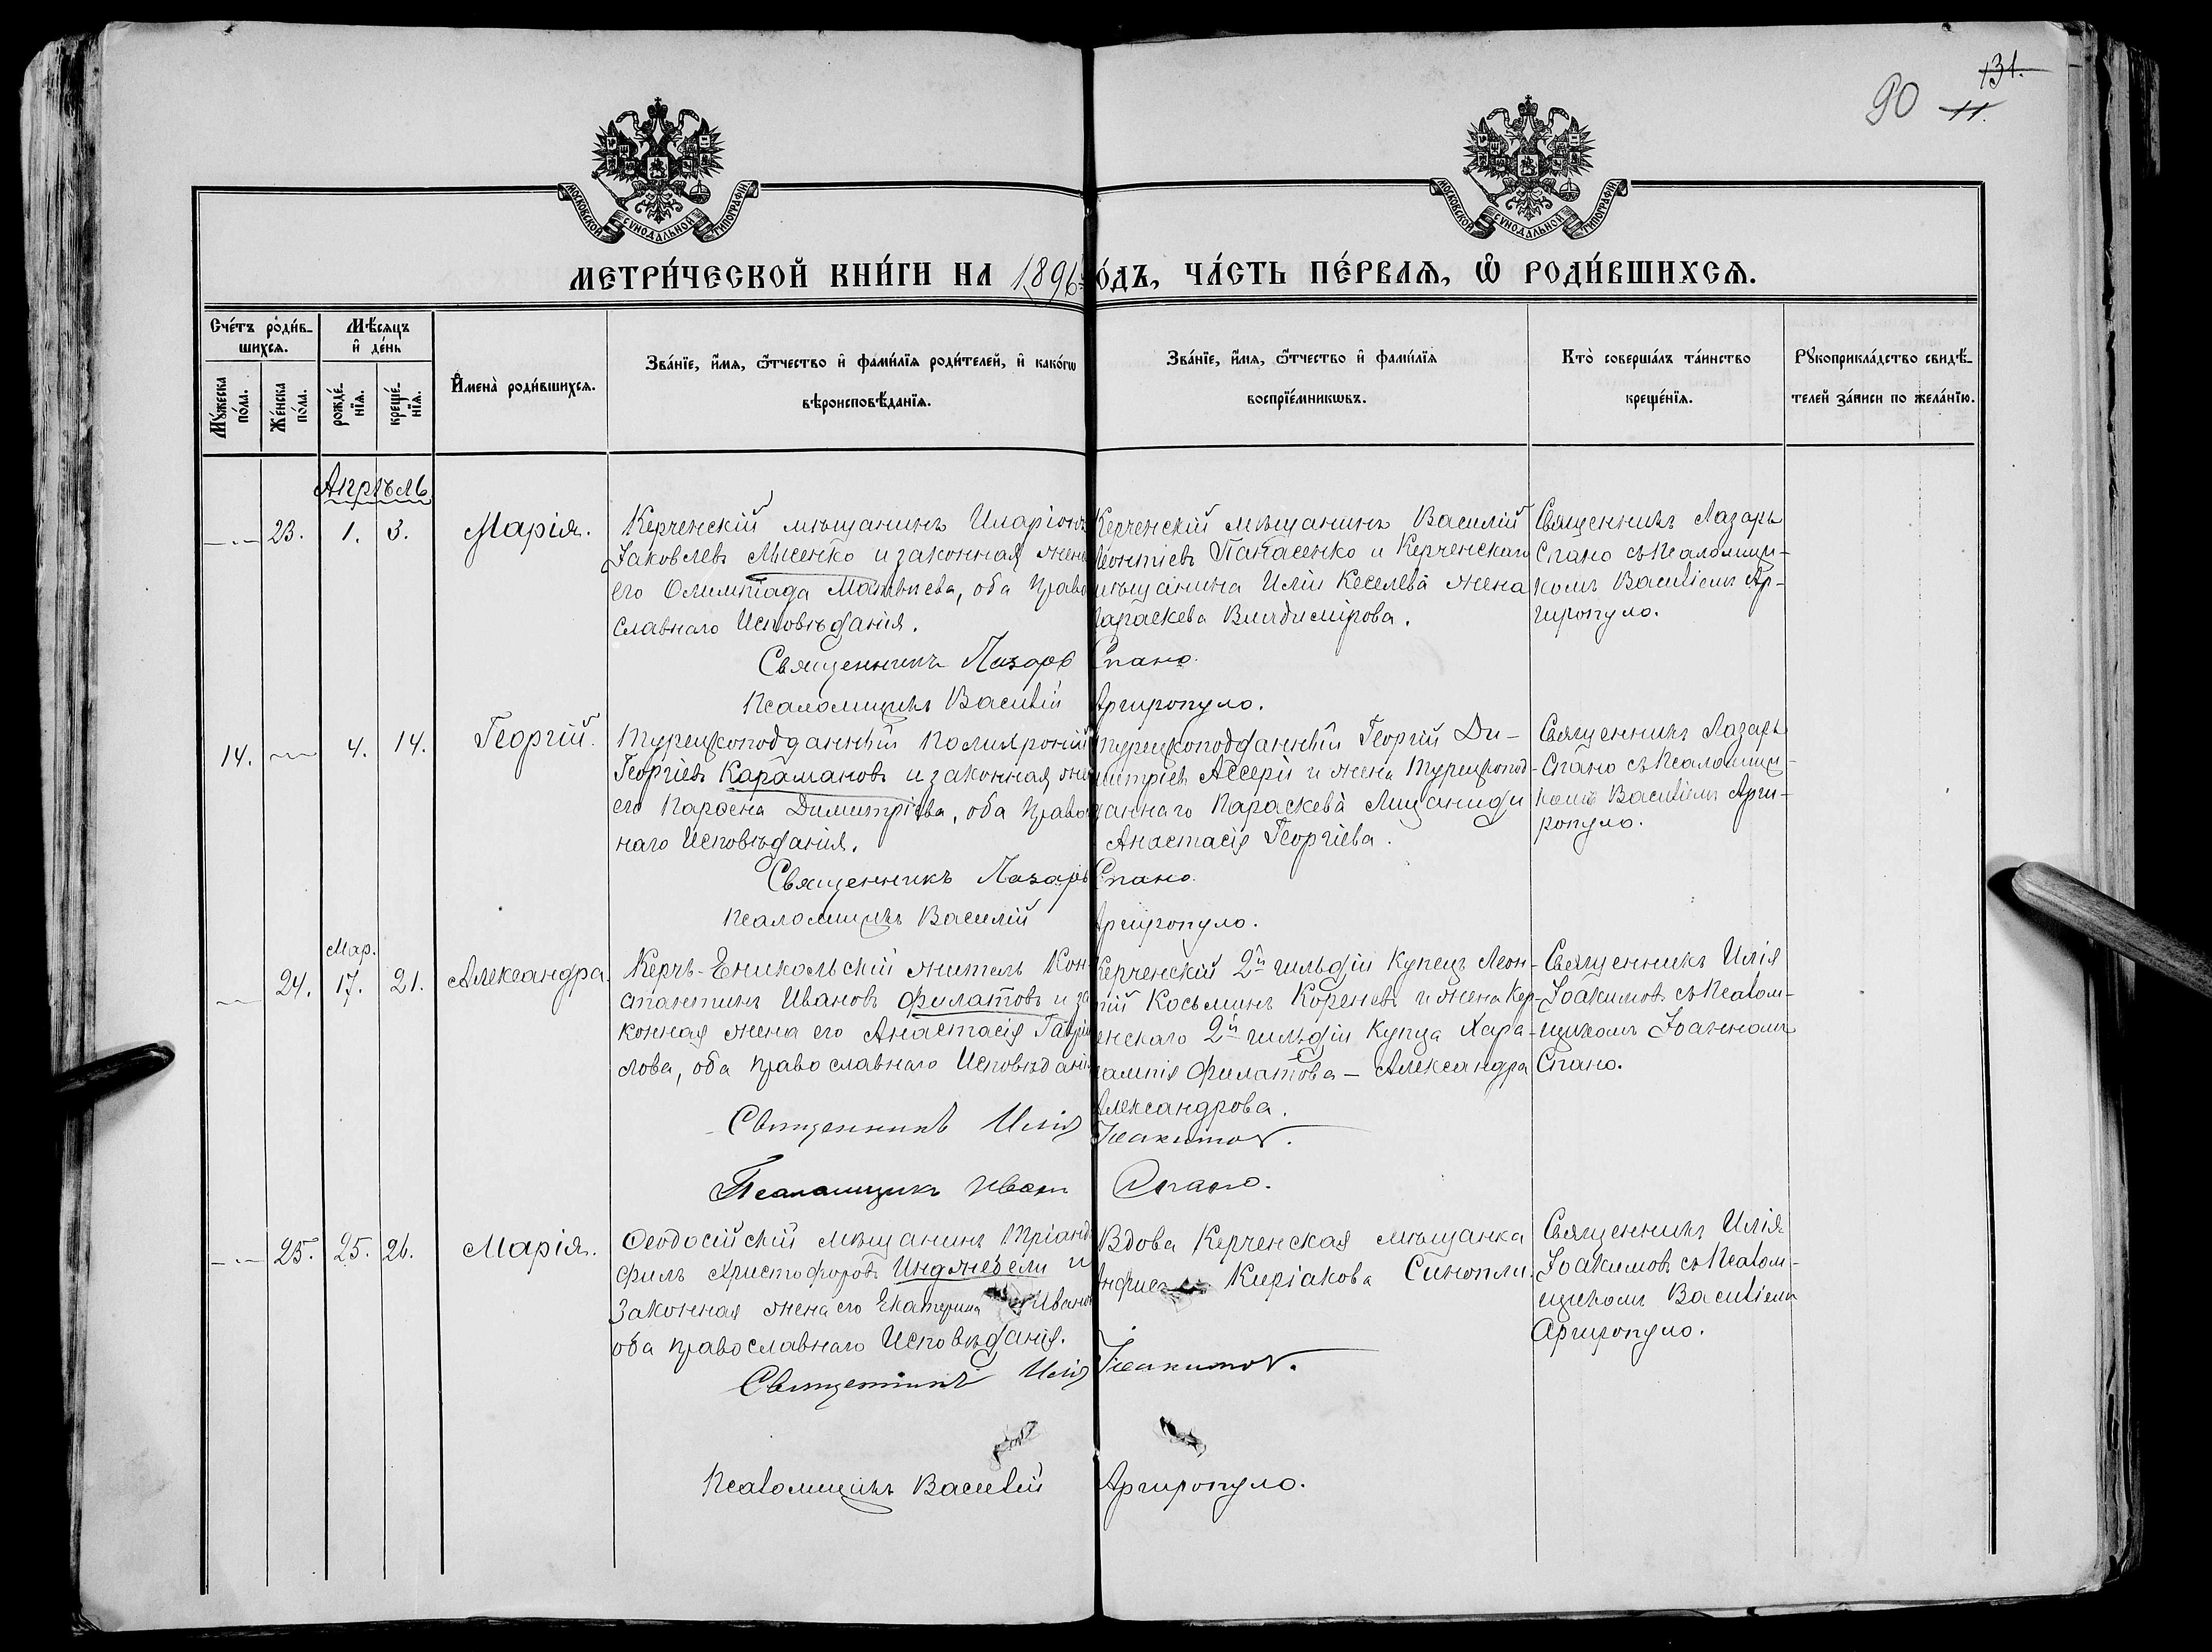 131.
90 11.
МОСКОВСКОЙ СѴНОДАЛЬНОЙ ТИПОГРАФІИ
МОСКОВСКОЙ СѴНОДАЛЬНОЙ ТИПОГРАФІИ
МЕТРИ́ЧЕСКОЙ КНИ́ГИ НА 1896 О́ДЪ, ЧА́СТЬ ПЕ́РВАѦ, Ѡ҆ РОДИ́ВШИХСѦ.
Сче́тъ роди́в-
шихсѧ.
Мꙋ́жеска
по́ла.
Же́нска
по́ла.
Мѣ́сѧцъ
и҆ де́нь
рожде́-
нїѧ.
креще́-
нїѧ.
И҆мена̀ роди́вшихсѧ.
Зва́нїе, и҆́мѧ, ѻ҆́тчество и҆ фами́лїѧ роди́телей, и҆ како́гѡ
вѣроисповѣ́данїѧ.
Зва́нїе, и҆́мѧ, ѻ҆́тчество и҆ фами́лїѧ
воспрїе́мникѡвъ.
Кто̀ соверша́лъ та́инство
креще́нїѧ.
Рꙋкоприкла́дство свидѣ́-
телей за́писи по жела́нїю.
Апрѣль
23. 1. 3. Марія.
Керченскій мѣщанинъ Иларіонъ
Іаковлевъ Лысенко и законная жена
его Олимпіада Матвѣева, оба право
славнаго Исповѣданія.
Керченскій мѣщанинъ Василій
Леонтіевъ Панасенко и Керченскаго
мѣщанина Иліи Киселева жена
Параскева Владимірова.
Священникъ Лазарь
Спано съ Псаломщи-
комъ Василіемъ Ар-
гиропуло.
Священникъ Лазарь Спано.
Псаломщикъ Василій Аргиропуло.
14. 4. 14. Георгій.
Турецкоподданный Поліхроній
Георгіевъ Карамановъ и законная жена
его Парѳена Димитріева, оба право
наго Исповѣданія.
турецкоподданный Георгій Ди-
митріевъ Ассери и жена Турецкопод-
даннаго Параскева Лицаниди
Анастасія Георгіева.
Священникъ Лазарь
Спано съ Псаломщи-
комъ Василіемъ Арги-
ропуло.
Священникъ Лазарь Спано.
Псаломщикъ Василій Аргиропуло.
Мар.
24. 17. 21. Александра.
Керчь-Еникольскій житель Кон-
стантинъ Ивановъ Филатовъ и за
конная жена его Анастасія Гаврі
лова, оба православнаго Исповѣданія
Керченскій 2й гильдіи Купецъ Леон-
тій Косьминъ Кореневъ и жена Кер-
ченскаго 2й гильдіи Купца Хара-
лампія Филатова — Александра
Александрова.
Священникъ Илія
Іоакимовъ съ Псалом-
щикомъ Іоанномъ
Спано.
Священникъ Илія Іоакимов.
Псаломщикъ Иванъ Спано.
25. 25. 26. Марія.
Ѳеодосійскій мѣщанинъ Тріанда
филъ Христофоровъ Инджебели и
Законная жена его Екатерина Иванова
оба православнаго Исповѣданія.
Вдова Керченская мѣщанка
Киріакова Синопли.
Священникъ Илія
Іоакимовъ съ Псалом-
щикомъ Василіемъ
Аргиропуло.
Священникъ Илія Іоакимов.
Псаломщикъ Василій Аргиропуло.